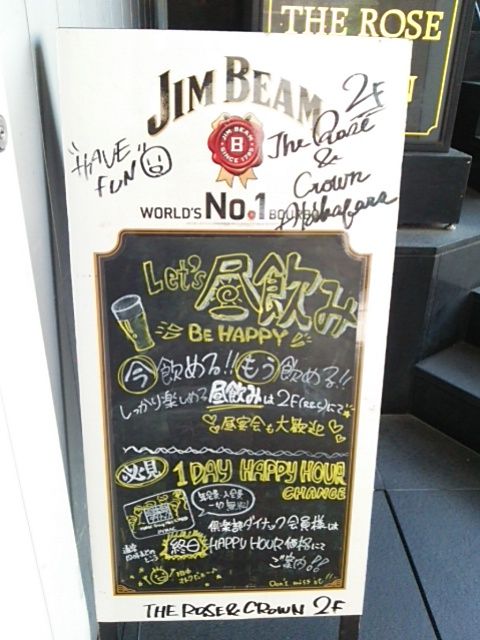 THE ROSE
JIM BEAM
JIM BEAM
B
SINCE 1795
WORLD'S No.1 BOURBON
"HAVE FUN"
2F
The Rose
&
Crown
Akihabara
Let's 昼飲み
BE HAPPY
今飲める!! もう飲める!!
しっかり楽しめる昼飲みは2F(REC)にて
昼宴会も大歓迎
必見 1DAY HAPPY HOUR
CHANGE
年会費・入会費
一切無料!
倶楽部ダイナック会員様は
終日 HAPPY HOUR 価格にて
ご案内!!
Don't miss it!!
THE ROSE & CROWN 2F